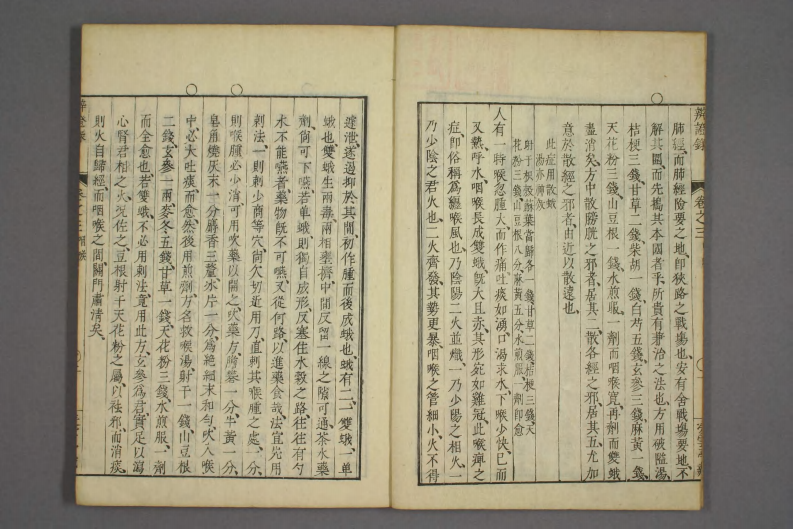 辨證錄
卷之三
肺經而肺經險要之地即狹路之戰場也安有舍戰場要地不
解其圍而先搗其本國者乎所貴有兼治之法也方用破隘湯
桔梗三錢甘草二錢柴胡一錢白芍五錢玄參三錢麻黃一錢
天花粉三錢山豆根一錢水煎服一劑而咽喉寬再劑而雙蛾
盡消矣方中散膀胱之邪者居其二散各經之邪居其五尤加
意於散經之邪者由近以散遠也
此症用散蛾
湯亦神效
射干枳殼蘇葉當歸各一錢甘草二錢桔梗三錢天
花粉三錢山豆根八分麻黃五分水煎服一劑即愈
人有一時喉忽腫大而作痛吐痰如湧口渴求水下喉少快已而
又熱呼水咽喉長成雙蛾既大且赤其形宛如雞冠此喉痺之
症即俗稱為纏喉風也乃陰陽二火並熾一乃少陽之相火一
乃少陰之君火也二火齊發其勢更暴咽喉之管細小火不得
遽泄遂遏抑於其間初作腫而後成蛾也蛾有二一雙蛾一單
蛾也雙蛾生兩毒兩相壅擠中間反留一線之隙可通茶水藥
劑尚可下嚥若單蛾則獨自成形反塞住水穀之路往往有勺
水不能嚥者藥物既不可嚥又從何路以進藥食哉法宜先用
刺法一則刺少商等穴尚欠切近用刀直刺其喉腫之處一分
則喉腫必少消可用吹藥以開之吹藥方膽礬一分牛黃一分
皂角燒灰末一分麝香三釐冰片一分為絕細末和勻吹入喉
中必大吐痰而愈然後用煎劑方名救喉湯射干一錢山豆根
二錢玄參一兩麥冬五錢甘草一錢天花粉三錢水煎服一劑
而全愈也若雙蛾不必用刺法竟用此方玄參為君實足以瀉
心腎君相之火況佐之豆根射干天花粉之屬以祛邪而消痰
則火自歸經而咽喉之間關門肅清矣